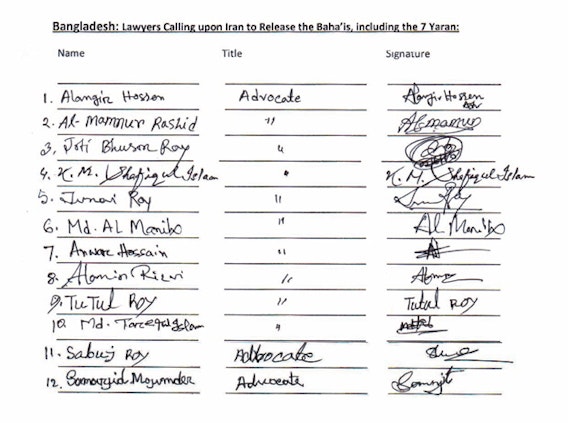 Bangladesh: Lawyers Calling upon Iran to Release the Baha'is, including the 7 Yaran:
Name Title Signature
1. Alangir Hosson Advocate Alangir Hossen
2. Al-Mamnur Rashid " Almamun
3. Joti Bhuson Roy "
4. K. M. Shafiqul Islam " K. M. Shafiqul Islam
5. Roy "
6. Md. AL Manibo " Al Manibo
7. Anwar Hossain "
8. Alamin Rizvi "
9. TUTUL ROY " Tutul ROY
10. Md. Tareequl Islam "
11. Sabuj Roy Adbocate
12. Advocate